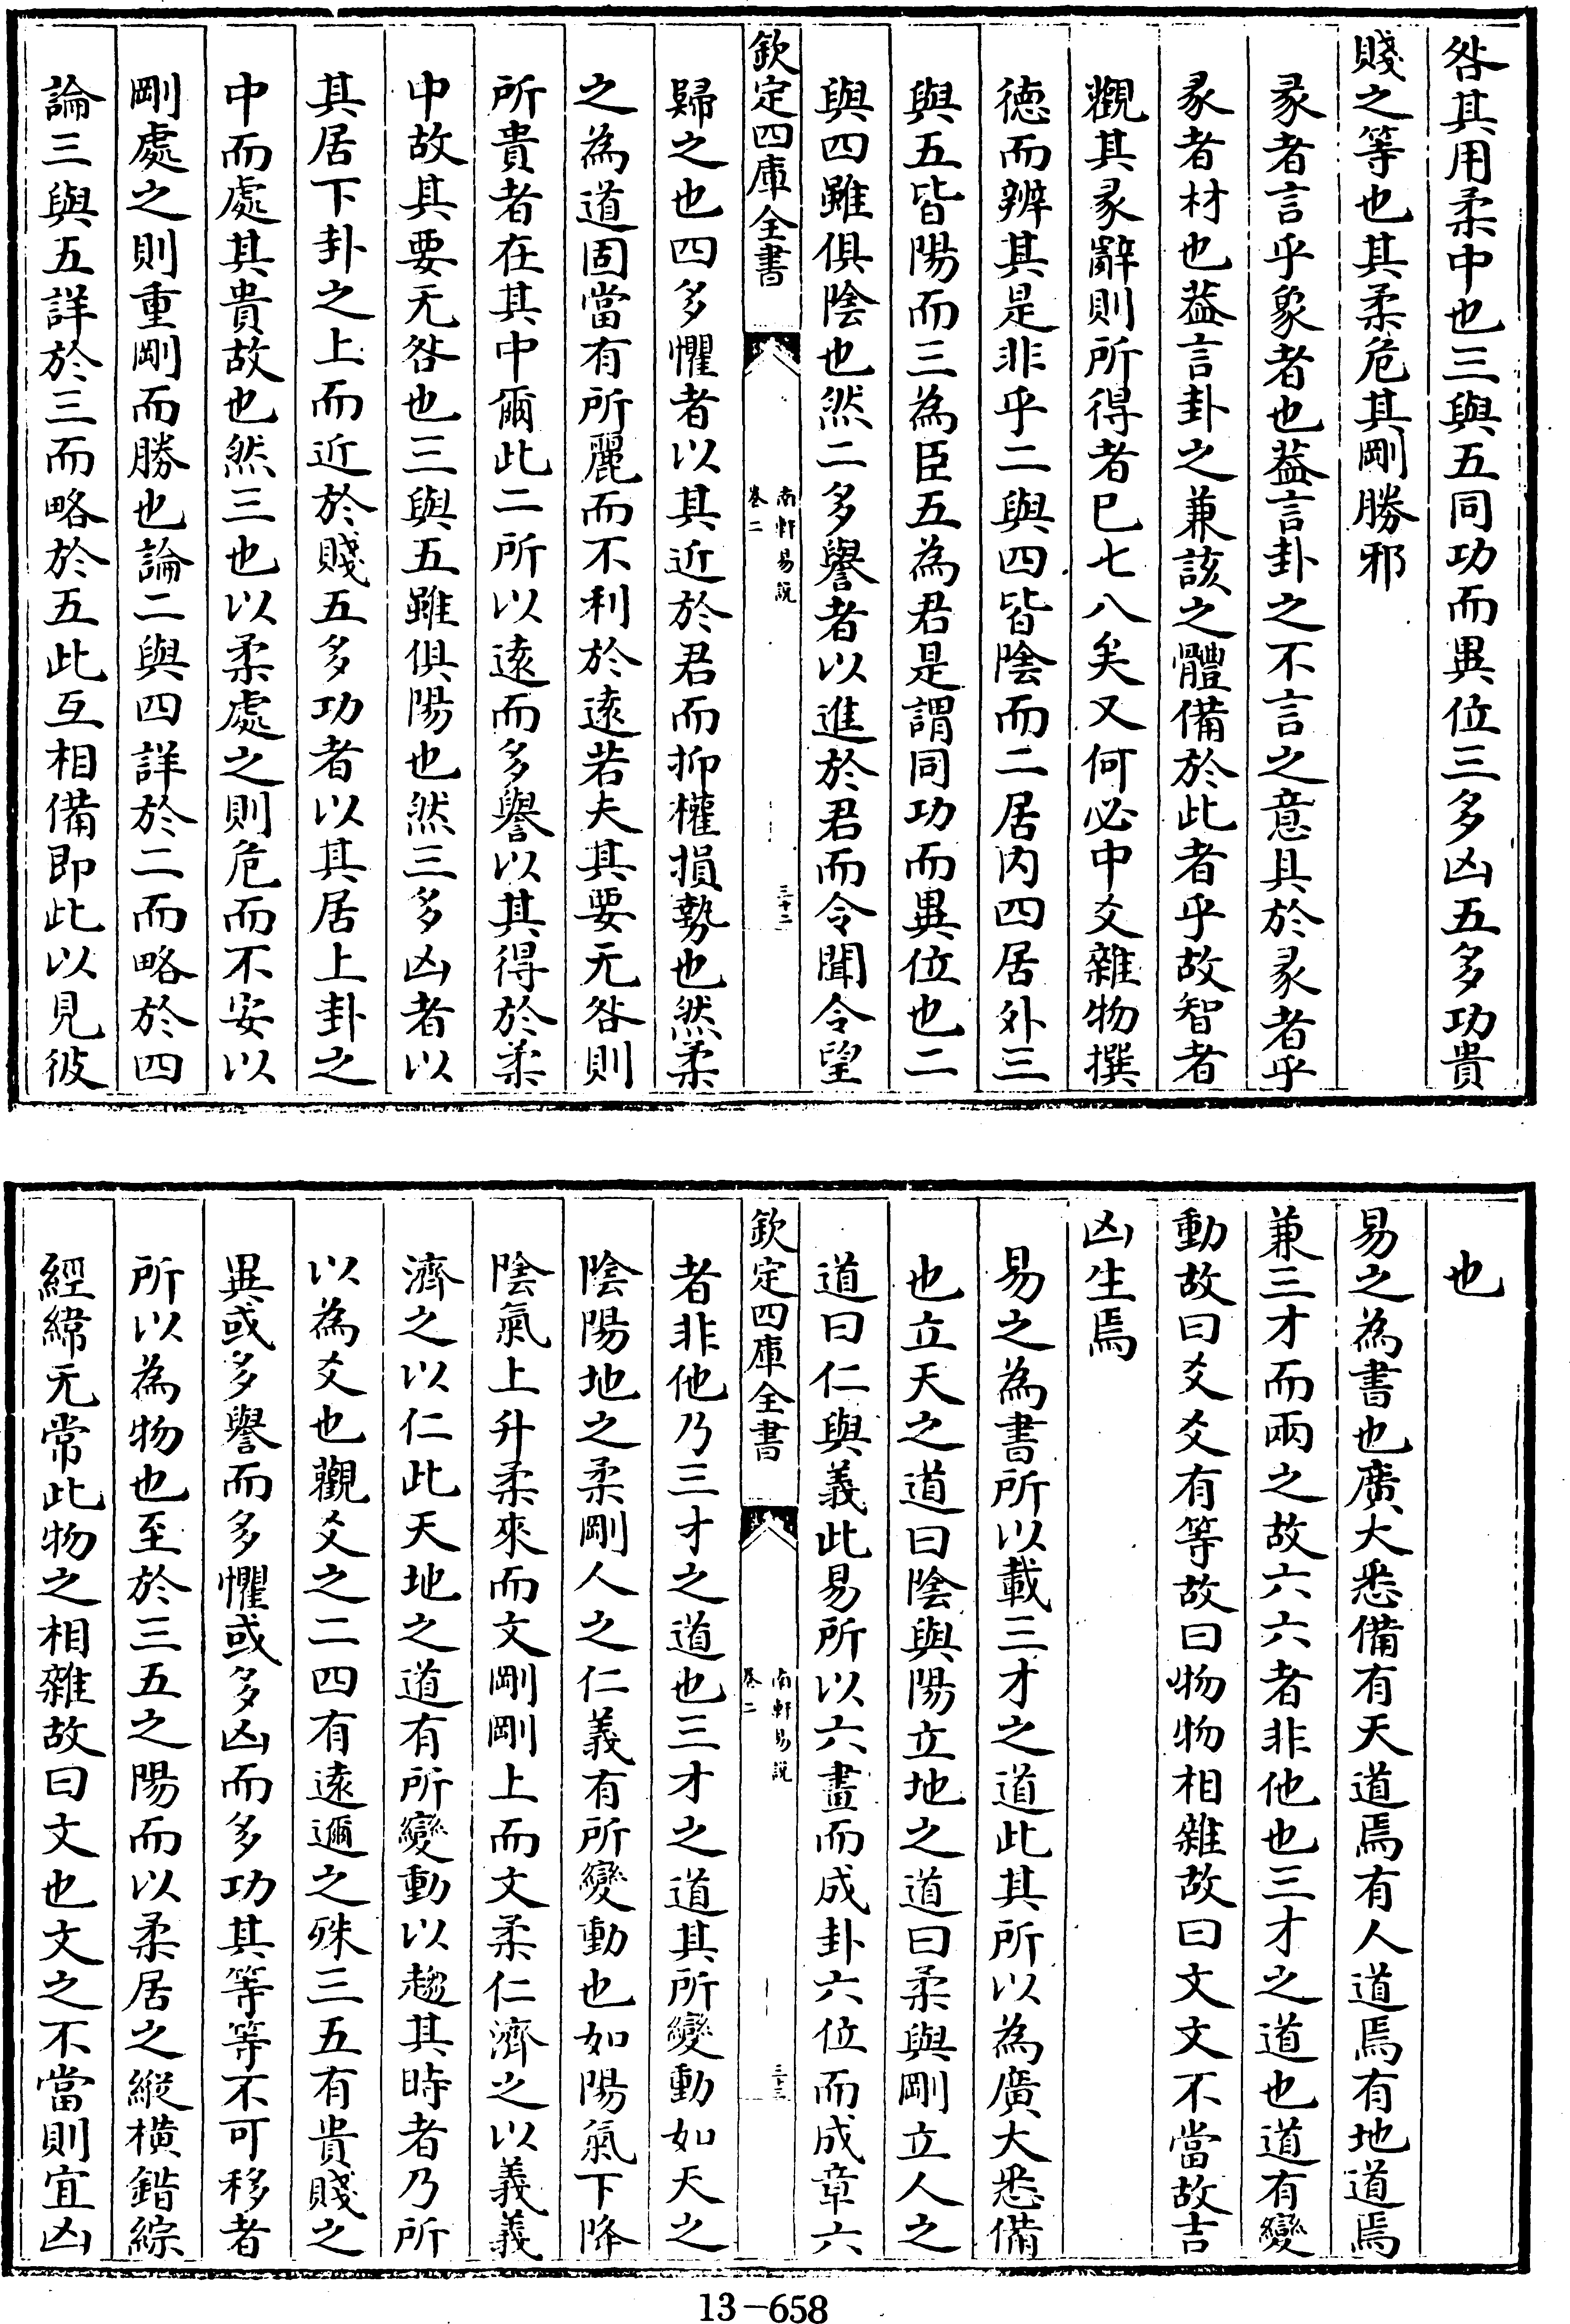 咎其用柔中也三與五同功而異位三多凶五多功貴
賤之等也其柔危其剛勝邪
彖者言乎象者也葢言卦之不言之意具於彖者乎
彖者材也葢言卦之兼該之體備於此者乎故智者
觀其彖辭則所得者已七八矣又何必中爻雜物撰
徳而辨其是非乎二與四皆隂而二居内四居外三
與五皆陽而三為臣五為君是謂同功而異位也二
與四雖俱隂也然二多譽者以進於君而令聞令望
欽定四庫全書
南軒易說
卷二
三十二
歸之也四多懼者以其近於君而抑權損勢也然柔
之為道固當有所麗而不利於逺若夫其要无咎則
所貴者在其中爾此二所以逺而多譽以其得於柔
中故其要无咎也三與五雖俱陽也然三多凶者以
其居下卦之上而近於賤五多功者以其居上卦之
中而處其貴故也然三也以柔處之則危而不安以
剛處之則重剛而勝也論二與四詳於二而略於四
論三與五詳於三而略於五此互相備即此以見彼
也
易之為書也廣大悉備有天道焉有人道焉有地道焉
兼三才而兩之故六六者非他也三才之道也道有變
動故曰爻爻有等故曰物物相雜故曰文文不當故吉
凶生焉
易之為書所以載三才之道此其所以為廣大悉備
也立天之道曰隂與陽立地之道曰柔與剛立人之
道曰仁與義此易所以六畫而成卦六位而成章六
欽定四庫全書
南軒易說
卷二
三十三
者非他乃三才之道也三才之道其所變動如天之
隂陽地之柔剛人之仁義有所變動也如陽氣下降
隂氣上升柔來而文剛剛上而文柔仁濟之以義義
濟之以仁此天地之道有所變動以趨其時者乃所
以為爻也觀爻之二四有逺邇之殊三五有貴賤之
異或多譽而多懼或多凶而多功其等等不可移者
所以為物也至於三五之陽而以柔居之縱横錯綜
經緯无常此物之相雜故曰文也文之不當則宜凶
13-658